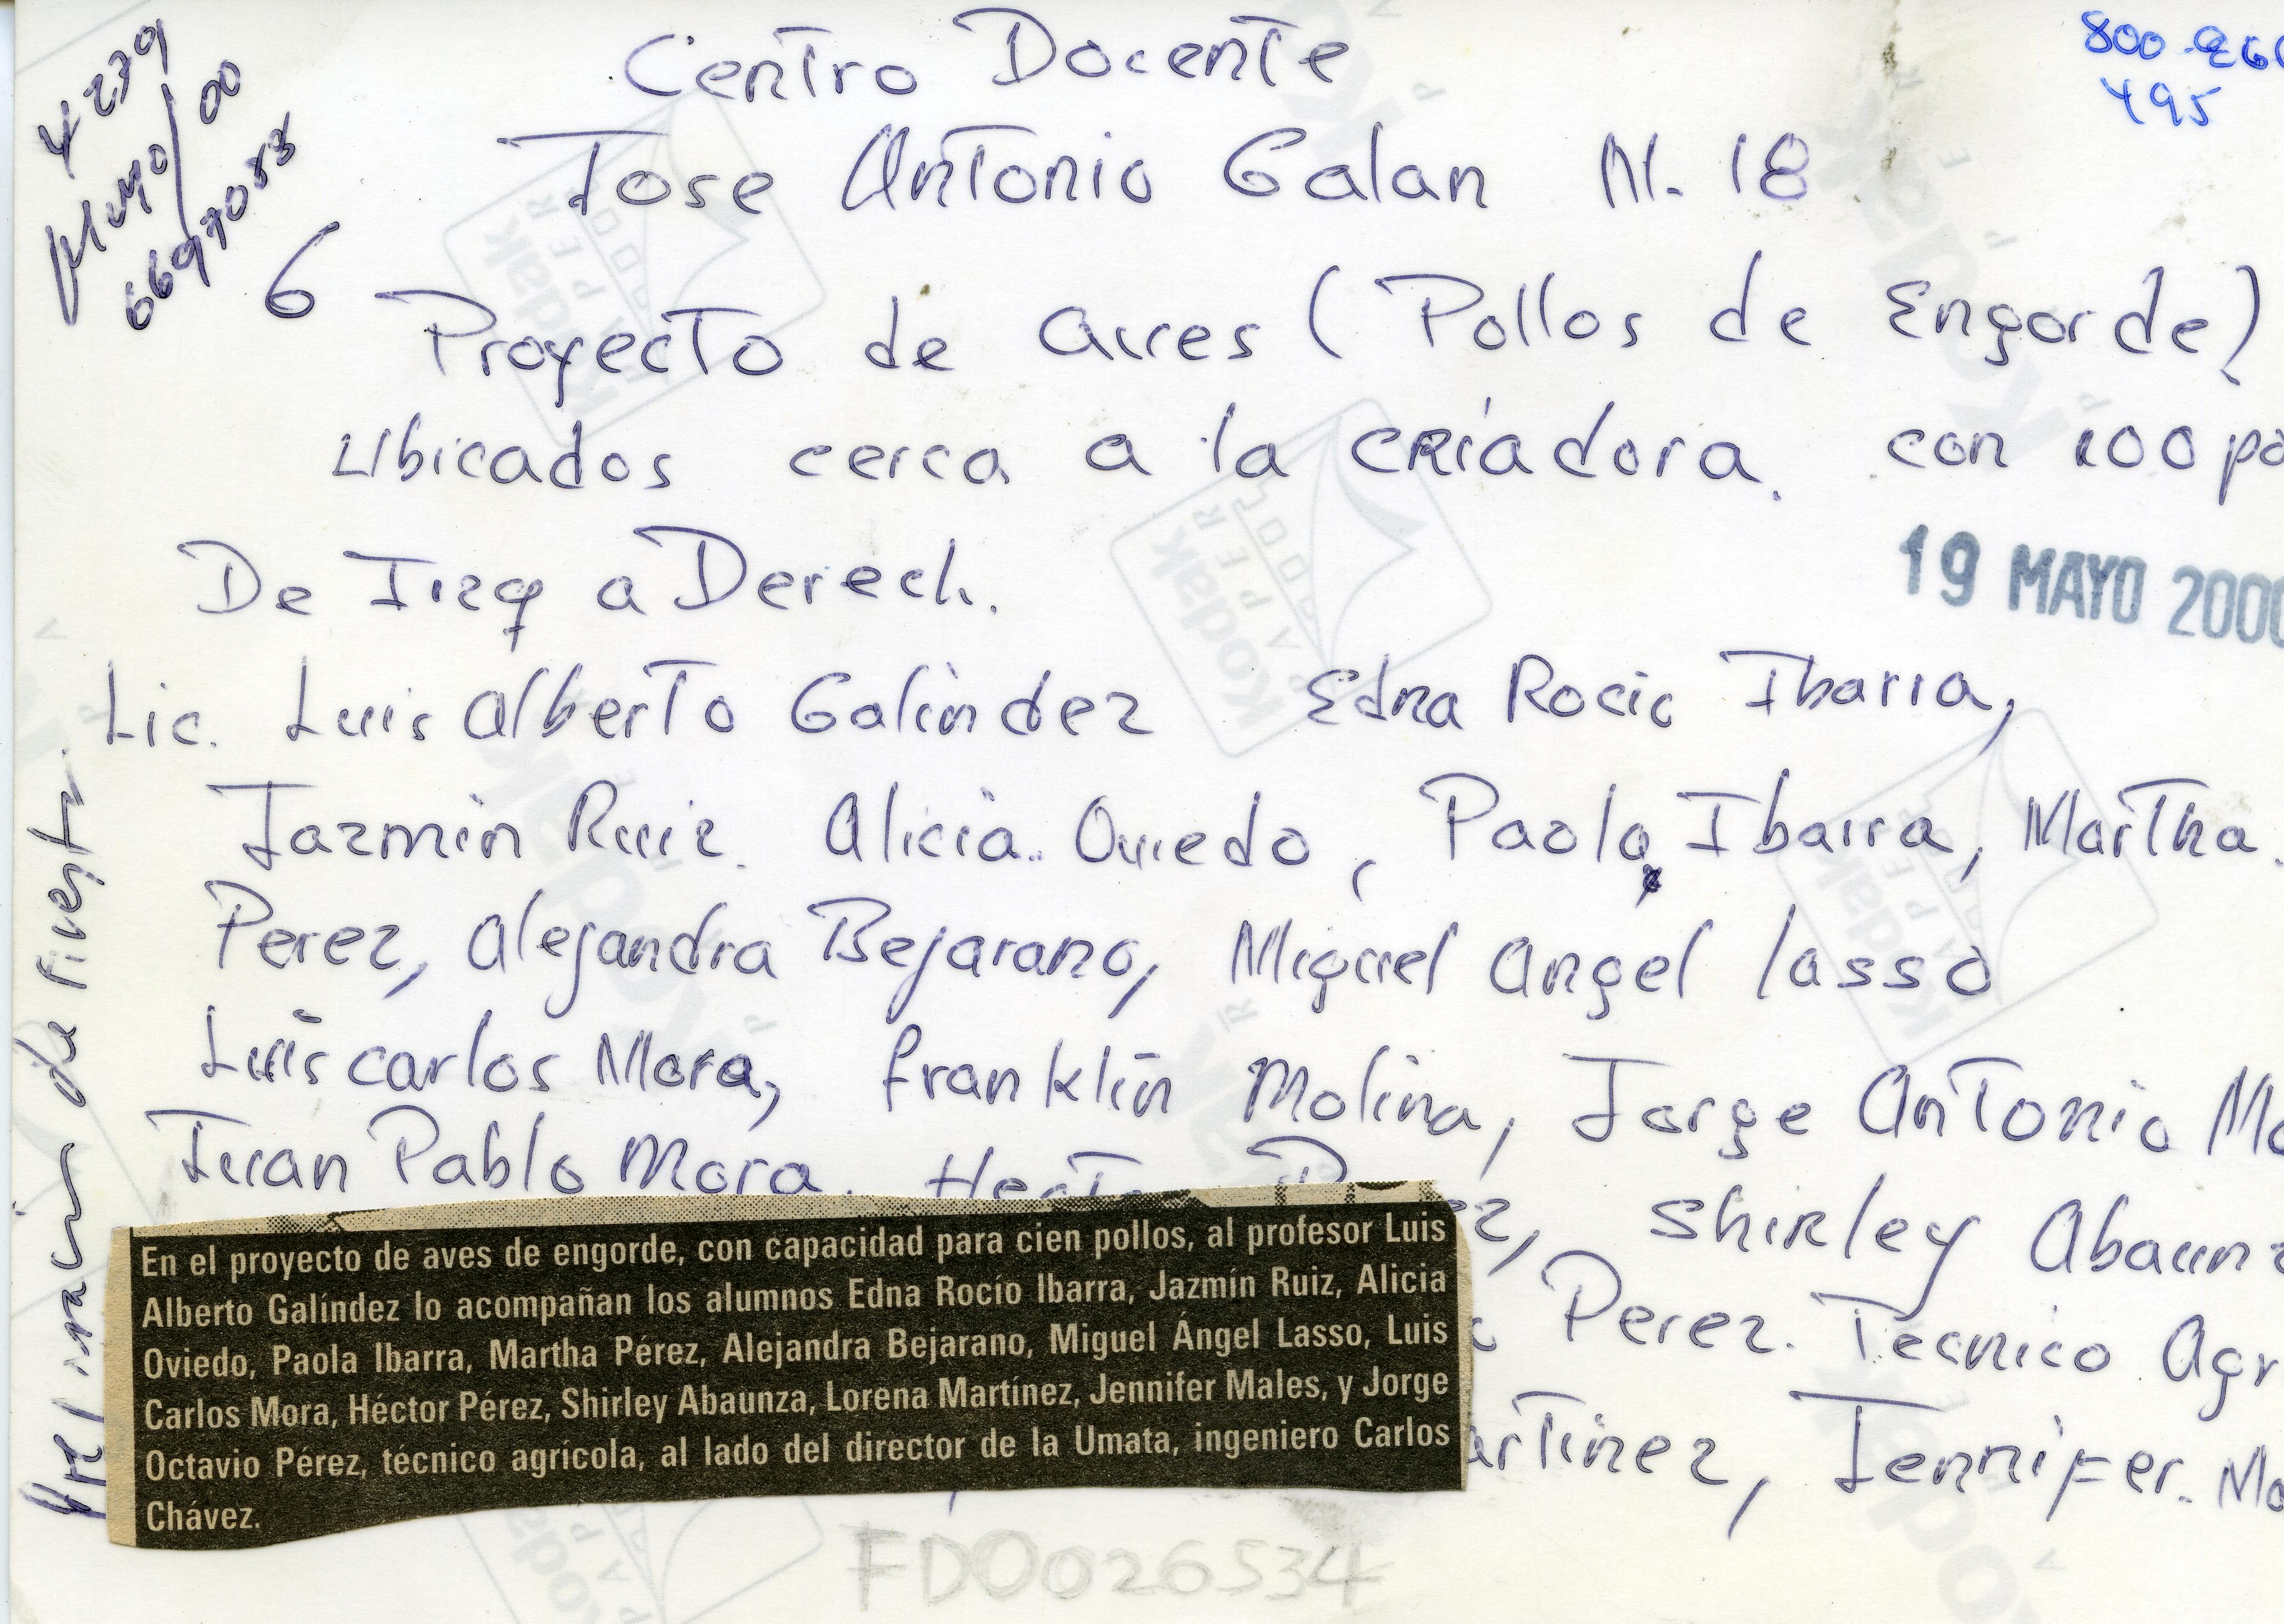 Centro Docente
Jose Antonio Galan N. 18
800-260
495
4 279
Mayo/00
6697083
6
Proyecto de aves (Pollos de Engorde)
Ubicados cerca a la criadora. con 100 po
De Izq a Derech.
19 MAYO 2000
Lic. Luis Alberto Galindez Edna Rocio Ibarra,
Jazmin Ruiz. Alicia. Oviedo, Paola Ibarra, Martha.
Perez, Alejandra Bejarano, Miguel Angel lasso
Luis carlos Mora, franklin Molina, Jorge Antonio Mo
Juan Pablo Mora.
ez, Shirley Abaunz
Perez. Tecnico Agr
artinez, Jennifer. Ma
En el proyecto de aves de engorde, con capacidad para cien pollos, al profesor Luis
Alberto Galíndez lo acompañan los alumnos Edna Rocío Ibarra, Jazmín Ruiz, Alicia
Oviedo, Paola Ibarra, Martha Pérez, Alejandra Bejarano, Miguel Ángel Lasso, Luis
Carlos Mora, Héctor Pérez, Shirley Abaunza, Lorena Martínez, Jennifer Males, y Jorge
Octavio Pérez, técnico agrícola, al lado del director de la Umata, ingeniero Carlos
Chávez.
FD0026534
Kodak
PAPER